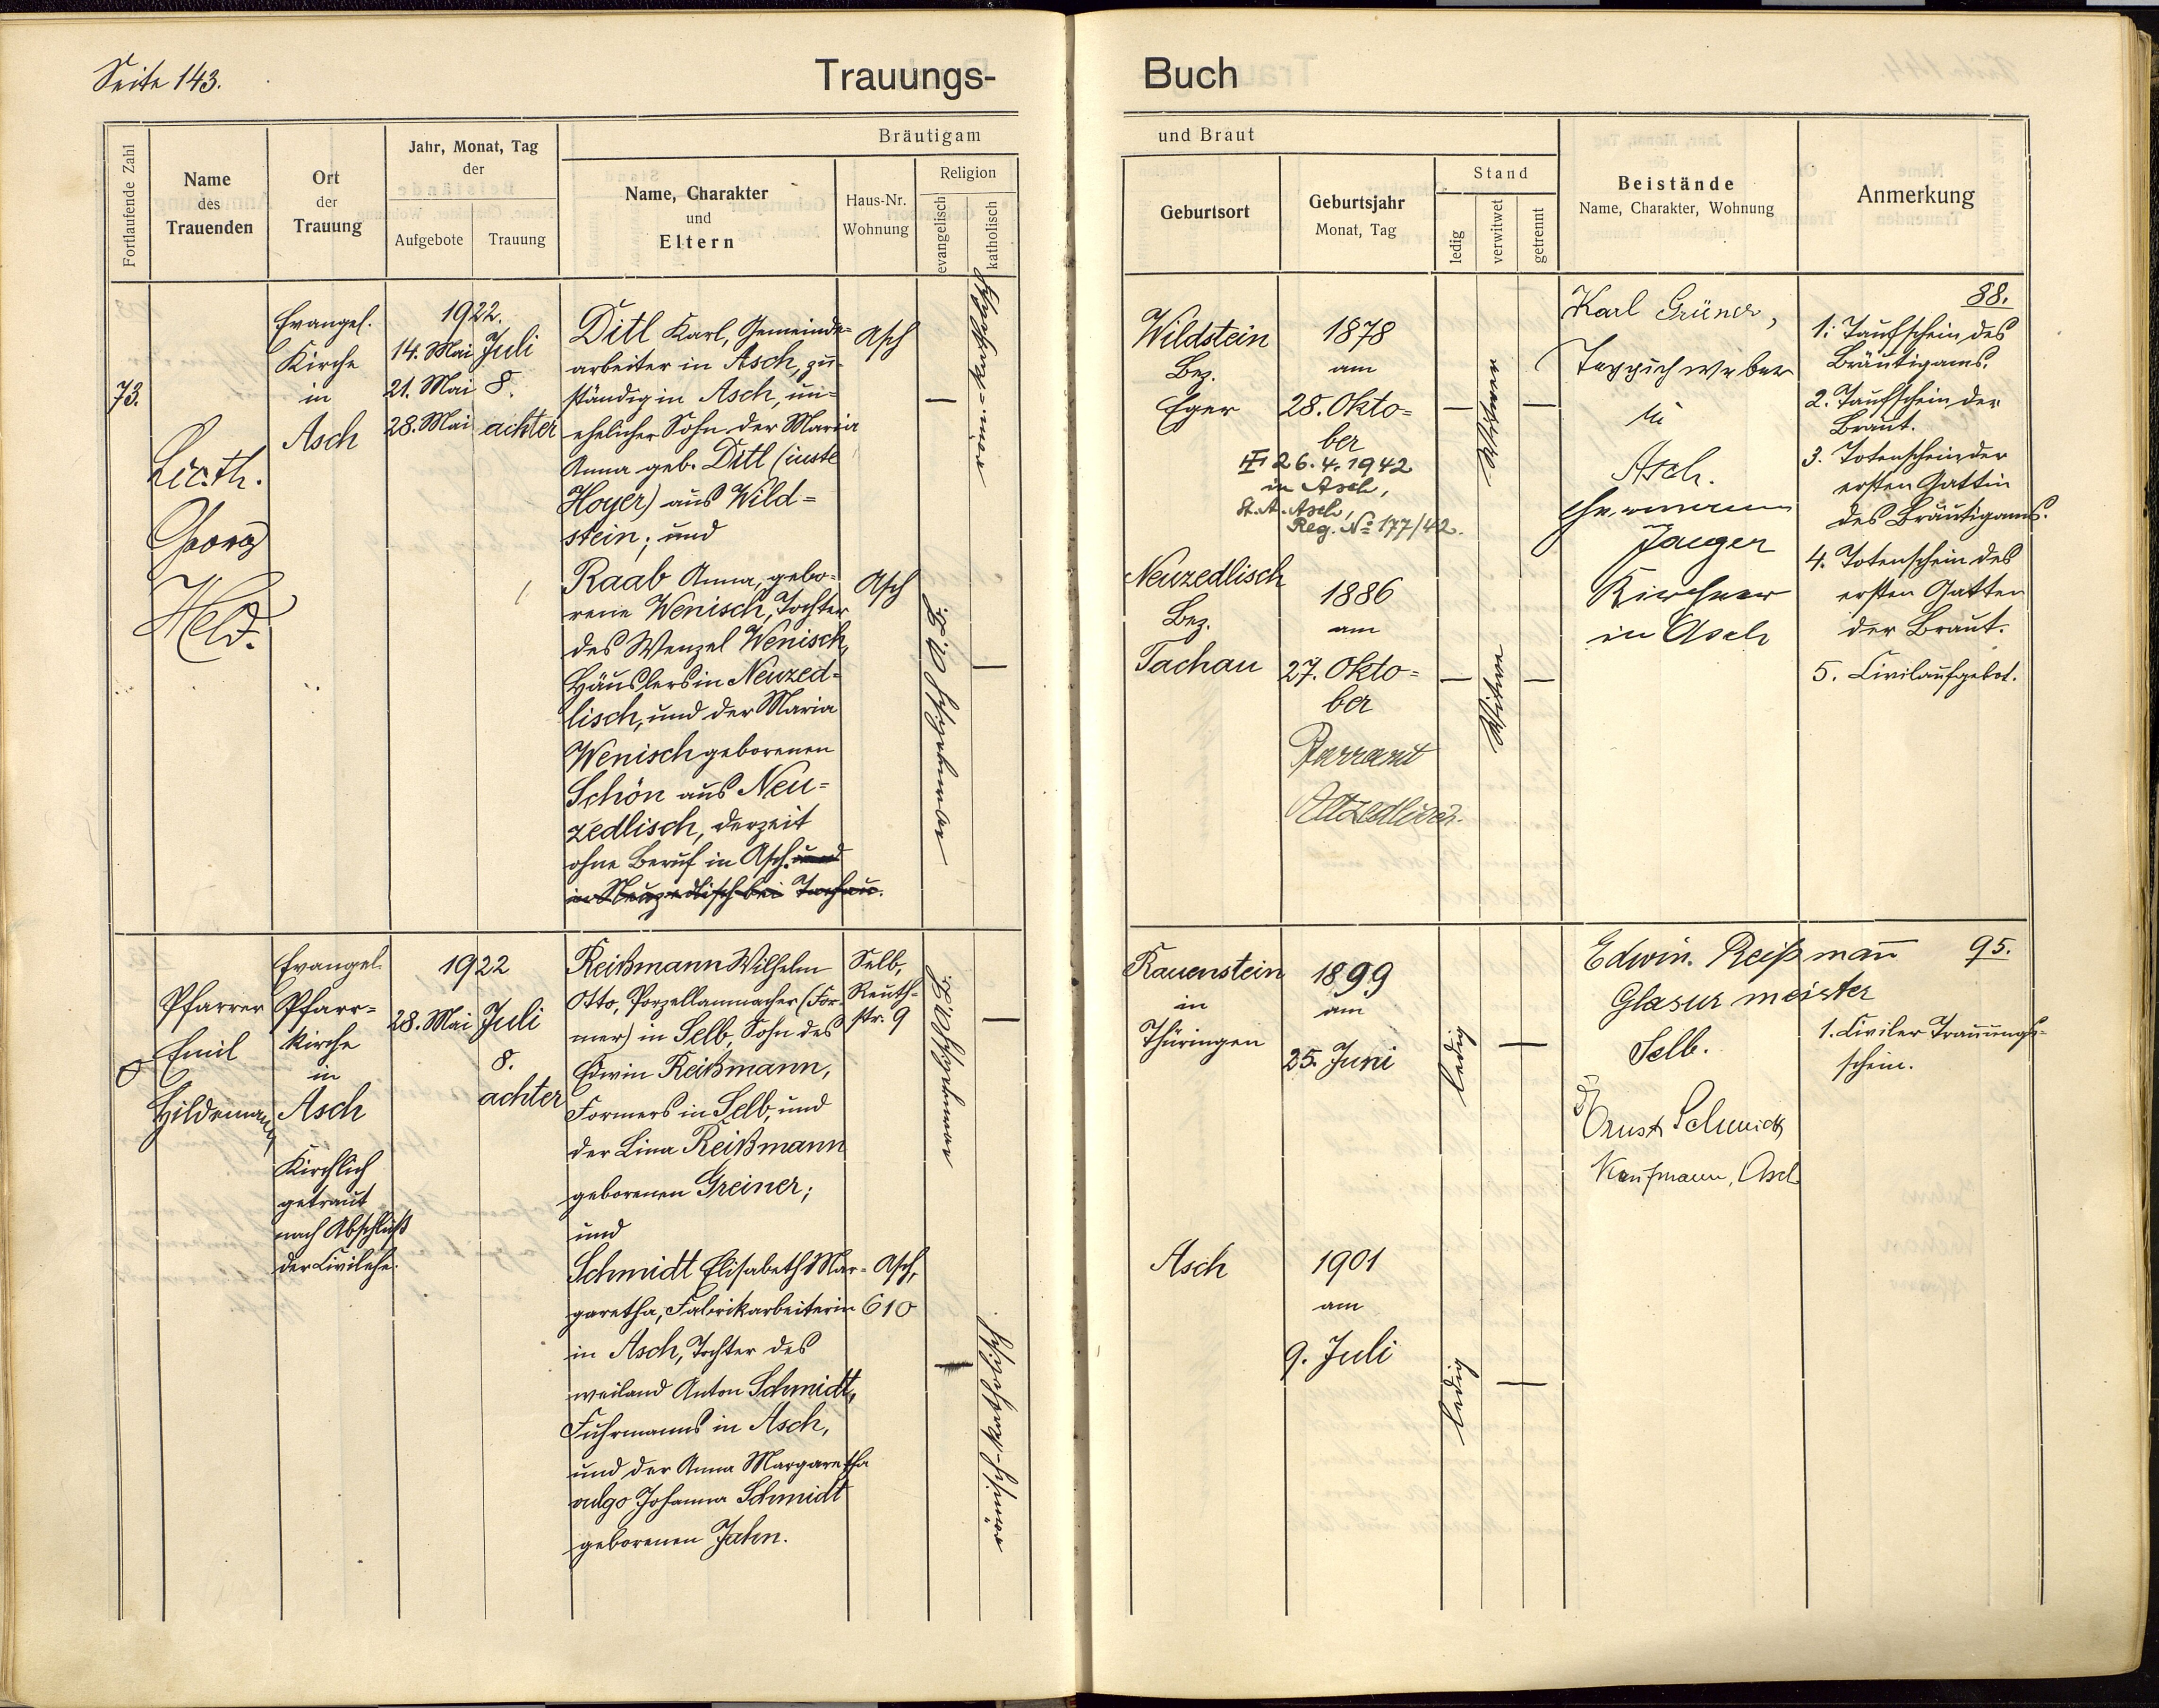 Seite 143.
Trauungs-
Buch
Fortlaufende Zahl
Name
des
Trauenden
Ort
der
Trauung
Jahr, Monat, Tag
der
Aufgebote
Trauung
Bräutigam
Name, Charakter
und
Eltern
Haus-Nr.
Wohnung
Religion
evangelisch
katholisch
und Braut
Geburtsort
Geburtsjahr
Monat, Tag
Stand
ledig
verwitwet
getrennt
Beistände
Name, Charakter, Wohnung
Anmerkung
73.
Georg
Held.
Evangel.
Kirche
in
Asch
1922.
14. Mai
21. Mai
28. Mai
Juli
8.
achter
Ditl Karl, Gemeinde=
arbeiter in Asch, zu-
ständig in Asch, un-
ehelicher Sohn der Maria
Anna geb. Ditl (iuste
Hoyer) aus Wild=
stein; und
Asch
—
Raab Anna, gebo-
rene Wenisch, Tochter
des Wenzel Wenisch,
Häuslers in Neuzed-
lisch, und der Maria
Wenisch geborenen
Schön aus Neu=
zedlisch, derzeit
ohne Beruf in Asch. und
in Neuzedlisch bei Tachau.
Asch
—
Wildstein
Bez.
Eger
1878
am
28. Okto=
ber
26.4.1942
in Asch,
St. A. Asch,
Reg. No 177/42.
—
Witwer
—
Neuzedlisch
Bez.
Tachau
1886
am
27. Okto=
ber
Pfarramt
Altzedlisch.
—
Witwe
—
Karl Grüner,
Teppichweber
in
Asch.
Jaeger
Kirchner
in Asch
88.
1. Taufschein des
Bräutigams.
2. Taufschein der
Braut.
3. Totenschein der
ersten Gattin
des Bräutigams.
4. Totenschein des
ersten Gatten
der Braut.
5. Civilaufgebot.
0
Pfarrer
Emil
Hildemann
Evangel.
Pfarr=
kirche
in
Asch
Kirchlich
getraut
nach Abschluß
der Civilehe.
1922
28. Mai
Juli
8.
achter
Reißmann Wilhelm
Otto, Porzellanmacher (For-
mer) in Selb, Sohn des
Edwin Reißmann,
Formers in Selb, und
der Lina Reißmann
geborenen Greiner;
und
Selb,
Reuth-
str. 9
—
Schmidt Elisabeth Mar-
garetha, Fabrikarbeiterin
in Asch, Tochter des
weiland Anton Schmidt,
Fuhrmanns in Asch,
und der Anna Margaretha
vulgo Johanna Schmidt
geborenen Jahn.
Asch,
610
—
römisch-katholisch
Rauenstein
in
Thüringen
1899
am
25. Juni
ledig
—
Asch
1901
am
9. Juli
ledig
—
Edwin. Reißmann
Glasurmeister
Selb.
Ernst Schmidt
Kaufmann, Asch
95.
1. Civiler Trauungs-
schein.